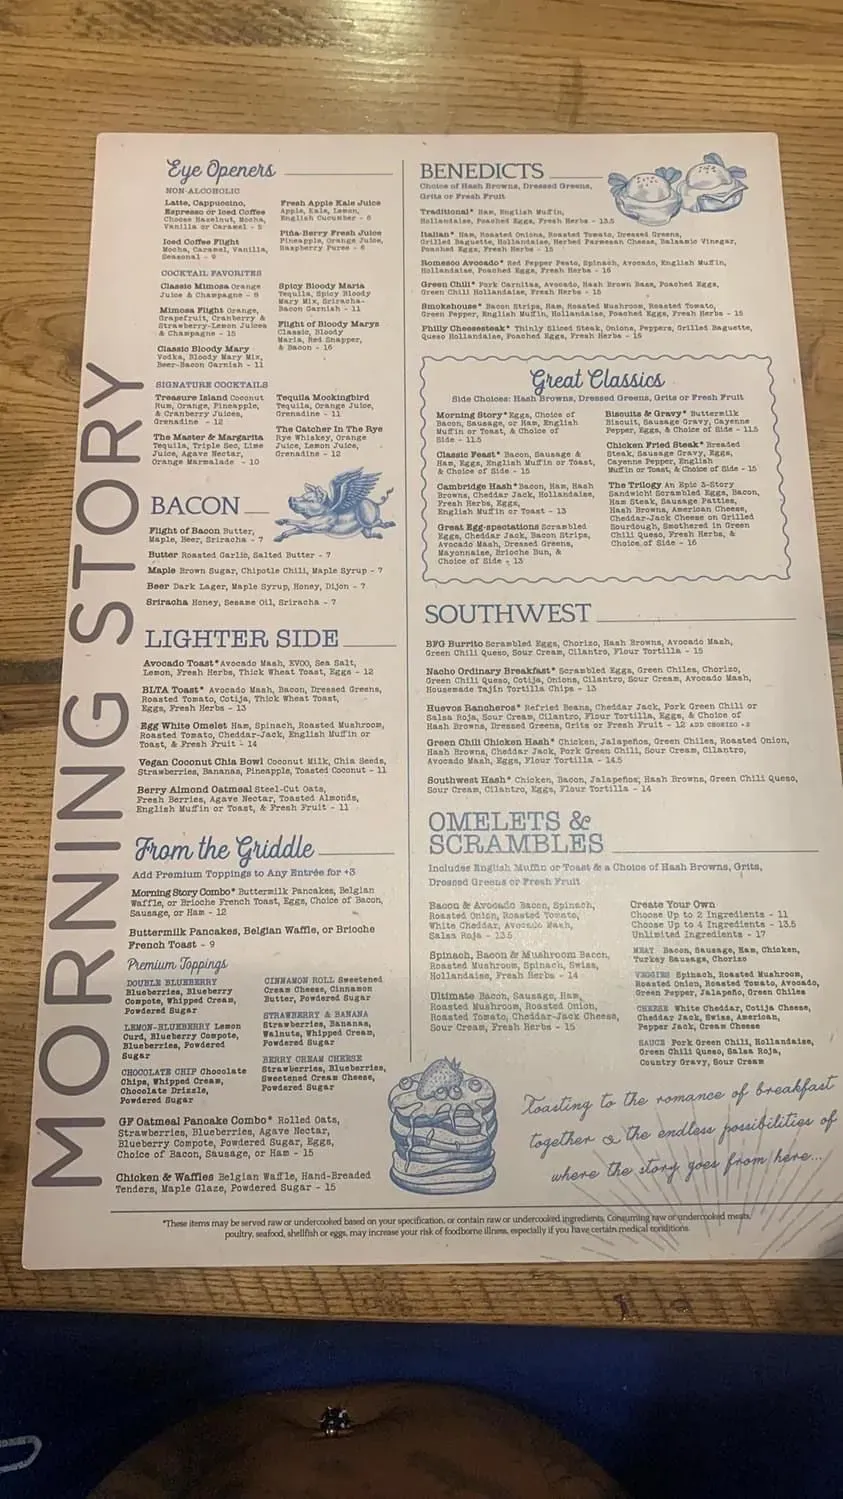 MORNING STORY
Eye Openers
NON-ALCOHOLIC
Latte, Cappuccino,
Espresso or Iced Coffee
Choose Hazelnut, Mocha,
Vanilla or Caramel - 5
Iced Coffee Flight
Mocha, Caramel, Vanilla,
Seasonal - 9
Fresh Apple Kale Juice
Apple, Kale, Lemon,
English Cucumber - 6
Piña-Berry Fresh Juice
Pineapple, Orange Juice,
Raspberry Puree - 6
COCKTAIL FAVORITES
Classic Mimosa Orange
Juice & Champagne - 8
Mimosa Flight Orange,
Grapefruit, Cranberry &
Strawberry-Lemon Juices
& Champagne - 15
Classic Bloody Mary
Vodka, Bloody Mary Mix,
Beer-Bacon Garnish - 11
Spicy Bloody Maria
Tequila, Spicy Bloody
Mary Mix, Sriracha-
Bacon Garnish - 11
Flight of Bloody Marys
Classic, Bloody
Maria, Red Snapper,
& Bacon - 16
SIGNATURE COCKTAILS
Treasure Island Coconut
Rum, Orange, Pineapple,
& Cranberry Juices,
Grenadine - 12
The Master & Margarita
Tequila, Triple Sec, Lime
Juice, Agave Nectar,
Orange Marmalade - 10
Tequila Mockingbird
Tequila, Orange Juice,
Grenadine - 11
The Catcher In The Rye
Rye Whiskey, Orange
Juice, Lemon Juice,
Grenadine - 12
BACON
Flight of Bacon Butter,
Maple, Beer, Sriracha - 7
Butter Roasted Garlic, Salted Butter - 7
Maple Brown Sugar, Chipotle Chili, Maple Syrup - 7
Beer Dark Lager, Maple Syrup, Honey, Dijon - 7
Sriracha Honey, Sesame Oil, Sriracha - 7
LIGHTER SIDE
Avocado Toast* Avocado Mash, EVOO, Sea Salt,
Lemon, Fresh Herbs, Thick Wheat Toast, Eggs - 12
BLTA Toast* Avocado Mash, Bacon, Dressed Greens,
Roasted Tomato, Cotija, Thick Wheat Toast,
Eggs, Fresh Herbs - 13
Egg White Omelet Ham, Spinach, Roasted Mushroom,
Roasted Tomato, Cheddar-Jack, English Muffin or
Toast, & Fresh Fruit - 14
Vegan Coconut Chia Bowl Coconut Milk, Chia Seeds,
Strawberries, Bananas, Pineapple, Toasted Coconut - 11
Berry Almond Oatmeal Steel-Cut Oats,
Fresh Berries, Agave Nectar, Toasted Almonds,
English Muffin or Toast, & Fresh Fruit - 11
From the Griddle
Add Premium Toppings to Any Entrée for +3
Morning Story Combo* Buttermilk Pancakes, Belgian
Waffle, or Brioche French Toast, Eggs, Choice of Bacon,
Sausage, or Ham - 12
Buttermilk Pancakes, Belgian Waffle, or Brioche
French Toast - 9
Premium Toppings
DOUBLE BLUEBERRY
Blueberries, Blueberry
Compote, Whipped Cream,
Powdered Sugar
LEMON-BLUEBERRY Lemon
Curd, Blueberry Compote,
Blueberries, Powdered
Sugar
CHOCOLATE CHIP Chocolate
Chips, Whipped Cream,
Chocolate Drizzle,
Powdered Sugar
CINNAMON ROLL Sweetened
Cream Cheese, Cinnamon
Butter, Powdered Sugar
STRAWBERRY & BANANA
Strawberries, Bananas,
Walnuts, Whipped Cream,
Powdered Sugar
BERRY CREAM CHEESE
Strawberries, Blueberries,
Sweetened Cream Cheese,
Powdered Sugar
GF Oatmeal Pancake Combo* Rolled Oats,
Strawberries, Blueberries, Agave Nectar,
Blueberry Compote, Powdered Sugar, Eggs,
Choice of Bacon, Sausage, or Ham - 15
Chicken & Waffles Belgian Waffle, Hand-Breaded
Tenders, Maple Glaze, Powdered Sugar - 15
BENEDICTS
Choice of Hash Browns, Dressed Greens,
Grits or Fresh Fruit
Traditional* Ham, English Muffin,
Hollandaise, Poached Eggs, Fresh Herbs - 13.5
Italian* Ham, Roasted Onions, Roasted Tomato, Dressed Greens,
Grilled Baguette, Hollandaise, Herbed Parmesan Cheese, Balsamic Vinegar,
Poached Eggs, Fresh Herbs - 15
Romesco Avocado* Red Pepper Pesto, Spinach, Avocado, English Muffin,
Hollandaise, Poached Eggs, Fresh Herbs - 16
Green Chili* Pork Carnitas, Avocado, Hash Brown Base, Poached Eggs,
Green Chili Hollandaise, Fresh Herbs - 15
Smokehouse* Bacon Strips, Ham, Roasted Mushroom, Roasted Tomato,
Green Pepper, English Muffin, Hollandaise, Poached Eggs, Fresh Herbs - 15
Philly Cheesesteak* Thinly Sliced Steak, Onions, Peppers, Grilled Baguette,
Queso Hollandaise, Poached Eggs, Fresh Herbs - 15
Great Classics
Side Choices: Hash Browns, Dressed Greens, Grits or Fresh Fruit
Morning Story* Eggs, Choice of
Bacon, Sausage, or Ham, English
Muffin or Toast, & Choice of
Side - 11.5
Classic Feast* Bacon, Sausage &
Ham, Eggs, English Muffin or Toast,
& Choice of Side - 15
Cambridge Hash* Bacon, Ham, Hash
Browns, Cheddar Jack, Hollandaise,
Fresh Herbs, Eggs,
English Muffin or Toast - 13
Great Egg-spectations Scrambled
Eggs, Cheddar Jack, Bacon Strips,
Avocado Mash, Dressed Greens,
Mayonnaise, Brioche Bun, &
Choice of Side - 13
Biscuits & Gravy* Buttermilk
Biscuit, Sausage Gravy, Cayenne
Pepper, Eggs, & Choice of Side - 11.5
Chicken Fried Steak* Breaded
Steak, Sausage Gravy, Eggs,
Cayenne Pepper, English
Muffin or Toast, & Choice of Side - 15
The Trilogy An Epic 3-Story
Sandwich! Scrambled Eggs, Bacon,
Ham Steak, Sausage Patties,
Hash Browns, American Cheese,
Cheddar-Jack Cheese on Grilled
Sourdough, Smothered in Green
Chili Queso, Fresh Herbs, &
Choice of Side - 16
SOUTHWEST
BFG Burrito Scrambled Eggs, Chorizo, Hash Browns, Avocado Mash,
Green Chili Queso, Sour Cream, Cilantro, Flour Tortilla - 15
Nacho Ordinary Breakfast* Scrambled Eggs, Green Chiles, Chorizo,
Green Chili Queso, Cotija, Onions, Cilantro, Sour Cream, Avocado Mash,
Housemade Tajin Tortilla Chips - 13
Huevos Rancheros* Refried Beans, Cheddar Jack, Pork Green Chili or
Salsa Roja, Sour Cream, Cilantro, Flour Tortilla, Eggs, & Choice of
Hash Browns, Dressed Greens, Grits or Fresh Fruit - 12 ADD CHORIZO +2
Green Chili Chicken Hash* Chicken, Jalapeños, Green Chiles, Roasted Onion,
Hash Browns, Cheddar Jack, Pork Green Chili, Sour Cream, Cilantro,
Avocado Mash, Eggs, Flour Tortilla - 14.5
Southwest Hash* Chicken, Bacon, Jalapeños, Hash Browns, Green Chili Queso,
Sour Cream, Cilantro, Eggs, Flour Tortilla - 14
OMELETS &
SCRAMBLES
Includes English Muffin or Toast & a Choice of Hash Browns, Grits,
Dressed Greens or Fresh Fruit
Bacon & Avocado Bacon, Spinach,
Roasted Onion, Roasted Tomato,
White Cheddar, Avocado Mash,
Salsa Roja - 13.5
Spinach, Bacon & Mushroom Bacon,
Roasted Mushroom, Spinach, Swiss,
Hollandaise, Fresh Herbs - 14
Ultimate Bacon, Sausage, Ham,
Roasted Mushroom, Roasted Onion,
Roasted Tomato, Cheddar-Jack Cheese,
Sour Cream, Fresh Herbs - 15
Create Your Own
Choose Up to 2 Ingredients - 11
Choose Up to 4 Ingredients - 13.5
Unlimited Ingredients - 17
MEAT Bacon, Sausage, Ham, Chicken,
Turkey Sausage, Chorizo
VEGGIES Spinach, Roasted Mushroom,
Roasted Onion, Roasted Tomato, Avocado,
Green Pepper, Jalapeño, Green Chiles
CHEESE White Cheddar, Cotija Cheese,
Cheddar Jack, Swiss, American,
Pepper Jack, Cream Cheese
SAUCE Pork Green Chili, Hollandaise,
Green Chili Queso, Salsa Roja,
Country Gravy, Sour Cream
Toasting to the romance of breakfast
together & the endless possibilities of
where the story goes from here...
*These items may be served raw or undercooked based on your specification, or contain raw or undercooked ingredients. Consuming raw or undercooked meats,
poultry, seafood, shellfish or eggs, may increase your risk of foodborne illness, especially if you have certain medical conditions.